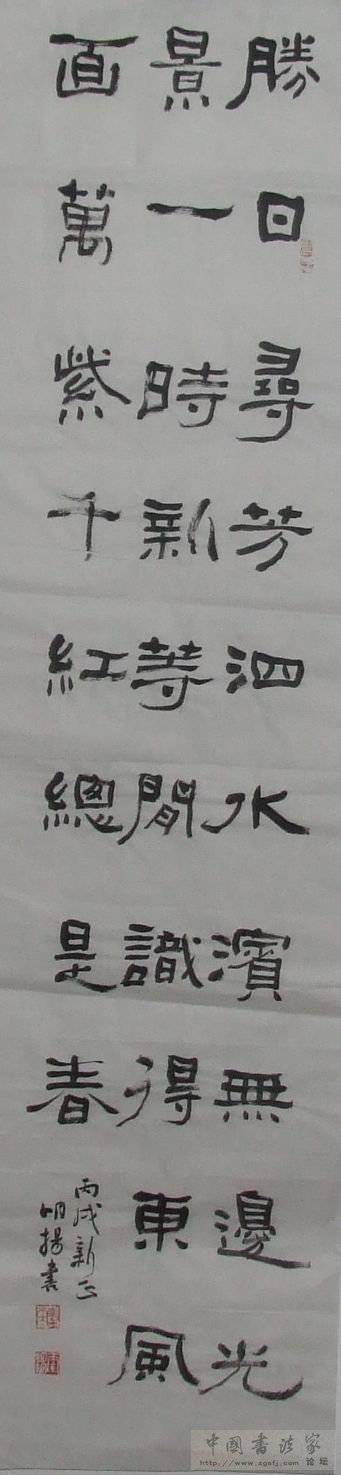 勝日尋芳泗水濱無邊光
景一時新等閒識得東風
面萬紫千紅總是春
丙戌新正
明揚書
中国书法家论坛
http://www.zgsfj.com